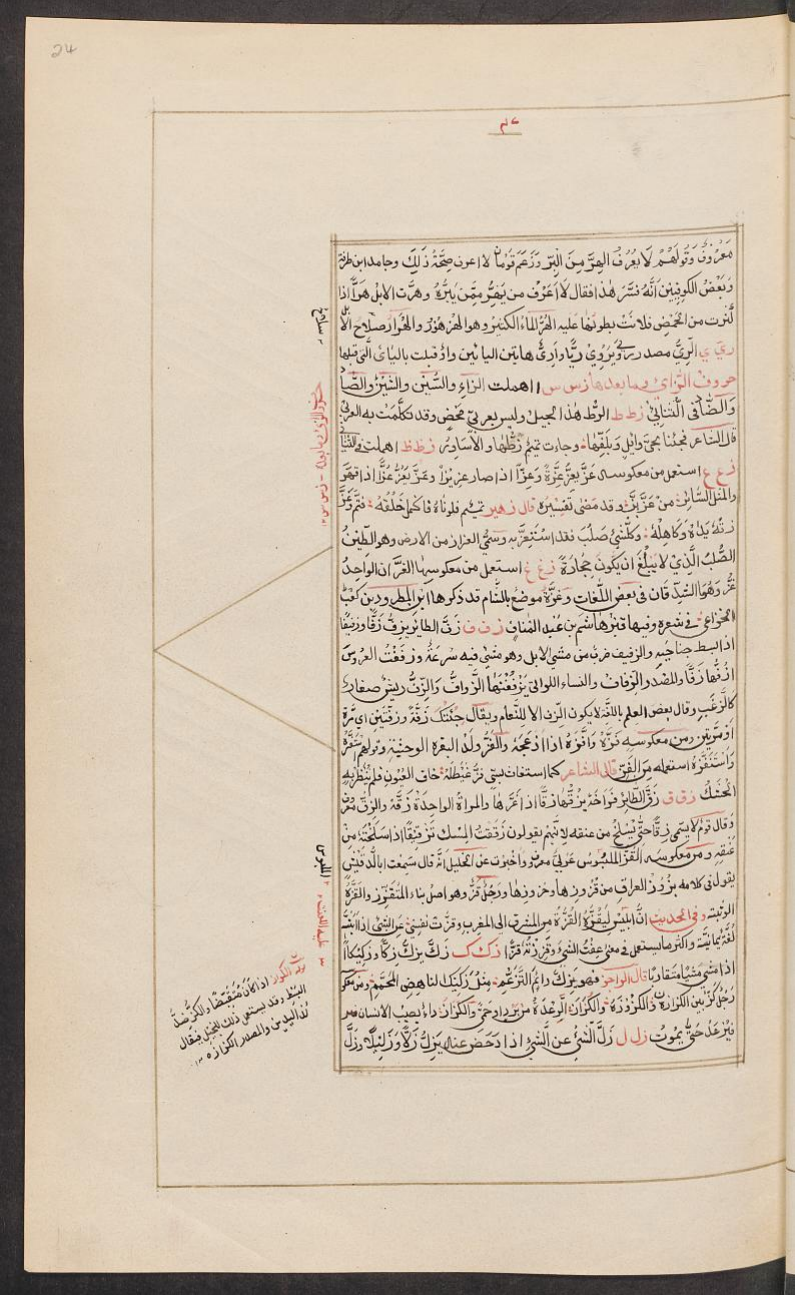 24
معروف وقولهم لا يعرف الهر من البر وزعم قوم لا اعرف صحة ذلك وجا مد ابن طرفة
وبعض الكوفيين انه فسر هذا فقال لا اعرف من يهر ممن يبره وهرت الابل هرا اذا
اكثرت من الحمض فلانت بطونها عليه الهر الماء الكثير وهو الهرهور والهرار سلاح الابل
ر ي ي الري مصدر روي يروى ريا وارى هاتين اليائين واو قلبت باليائ التى قبلها
حروف الزاى وما بعدها ز س س اهملت الزاء والسين والشين والصاد
والضاد فى الثنائي ز ط ط الزط هذا الجيل وليس بعربي محض وقد تكلمت به العرب
قال الشاعر فجئنا بحى وايل وبلفها وجاءت تميم زطها والاساور ز ظ ظ اهملت فى الثنائى
ز ع ع استعمل من معكوسه عز يعز عزة وعزا اذا صار عزيزا وعز يعز عزا اذا قهر
والمثل السائر من عز بز وقد مضى تفسيره قال زهير تميم فلوناه فاكمل خلقه فتم وعز
زته يداه وكاهله وكل شئ صلب فقد استعز به وسمى العزاز من الارض وهو الطين
الصلب الذي لا يبلغ ان يكون حجارة ز غ غ استعمل من معكوسها الغزان الواحد
غز وهو الشدقان فى بعض اللغات وغزة موضع بالشام قد ذكرها مطرود بن كعب
الخزاعى فى شعره وفيها قبر هاشم بن عبد مناف ز ف ف زف الطائر يزف زفا وزفيفا
اذا بسط جناحيه والزفيف ضرب من مشى الابل وهو مشى فيه سرعة وزففت العروس
ازفها زفا والمصدر الزفاف والنساء اللواتى يزففنها الزواف والزف ريش صغار
كالزغب وقال بعض اهل العلم باللغة لا يكون الزف الا للنعام ويقال جئتك زفة وزفتين اى مرة
او مرتين ومن معكوسه فزه وافزه اذا ازعجه والفز ولد البقرة الوحشية وقولهم استفزه
واستفزه استعمله من الفز قال الشاعر كما استغاث بسئ فز غيطلة خاف العيون فلم ينظر به
الحشك ز ق ق زق الطائر فراخه يزقها زقا اذا غرها والمراة الواحدة زقة والزق معروف
وقال قوم لا يسمى زقا حتى يسلخ من عنقه لانهم يقولون زققت المسك تزقيقا اذا سلخته من
عنقه ومن معكوسه القز الملبوس عربي معروف واخبرت عن الخليل انه قال سمعت ابا الدقيش
يقول فى كلامه بزوز العراق من قزوزها وخزوزها ورجل قز وهو اصل بناء المتقزز والقزة
الوثبة وفى الحديث ان ابليس ليقز القزة من المشرق الى المغرب وقزت نفسى عن الشئ اذا ابته
لغة يمانية واكثر ما يستعمل فى معنى عفت الشئ وقززته قزا ز ك ك زك يزك زكا وزكيكا
اذا مشى مشيا متقاربا قال الراجز فهو يزك دائم التزغم مثل زكيك الناهض المحمم ومن معكوسه
رجل كز بين الكزازة والكزوزة والكزاز الرعدة من برد او حمى والكزاز داء يصيب الانسان
فيرعد حتى يموت ز ل ل زل الشئ عن الشئ اذا دحض عنه يزل زلا وزليلا وزل
سلاح
الملبوس
عليه اللعنة
اذا كان متقبضا والكز ضد
البسط وقد يستعمل ذلك للبخيل يقال
كز اليدين والمصدر الكزازة